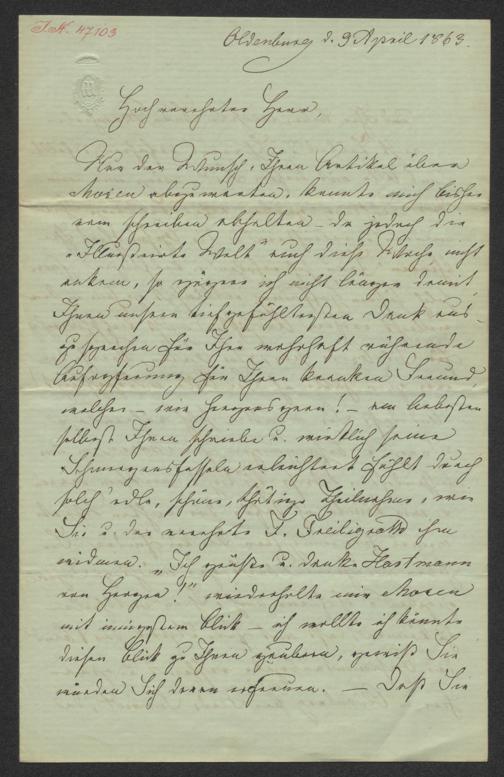 I.N. 47103
Oldenburg d. 9 April 1863.
Hochverehrter Herr,
Nur der Wunsch, Ihren Artikel über
Mosen abzuwarten, konnte mich bisher
vom schreiben abhalten – da jedoch die
„Illustrirte Welt" auch diese Woche nicht
ankam, so zögere ich nicht länger damit,
Ihnen unsern tiefgefühltesten Dank aus-
zusprechen für Ihre wahrhaft rührende
Aufopferung für Ihren kranken Freund,
welcher – wie herzensgern! – am liebsten
selbst Ihnen schriebe u. wirklich seine
Schmerzensfesseln erleichtert fühlt durch
solch' edle, schöne, thätige Theilnahme, wie
Sie u. der verehrte F. Freiligrath ihm
widmen. „Ich grüße u. danke Hartmann
von Herzen!" wiederholte mir Mosen
mit innigstem Blick – ich wollte ich könnte
diesen Blick zu Ihnen zaubern, gewiß Sie
würden Sich daran erfreuen. – Daß Sie